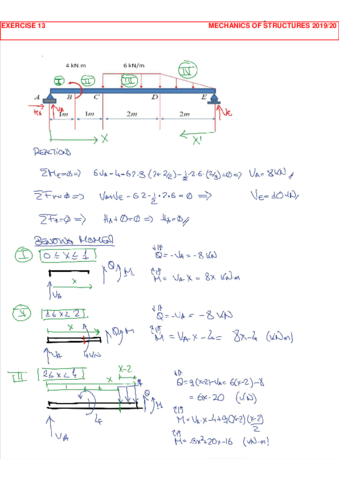 EXERCISE 13 MECHANICS OF STRUCTURES 2019/20
4 kN m 6 kN/m
I II III IV
A B C D E
HA VA VE
1m 1m 2m 2m
X X'
REACTIONS
ΣME=0=> 6VA-4-6·2·3
=> VA=8kN
ΣFV=0=> VA+VE-6·2-½·2·6=0 => VE=10kN
ΣFH=0=> HA+0=0=> HA=0
BENDING MOMENT
I 0≤X≤1 Q=-VA=-8kN
Q M M=VA·X=8X kN·m
X
VA
II 1≤X≤2 Q=-VA=-8kN
X Q M M=VA·X-4=8X-4 (kN·m)
VA
III 2≤X≤4 X-2
X Q=q(X-2)-VA=6(X-2)-8
Q M =6X-20 (kN)
4 M=VA·X-4-q(X-2)(X-2)/2
VA M=-3X²+20X-16 (kN·m)